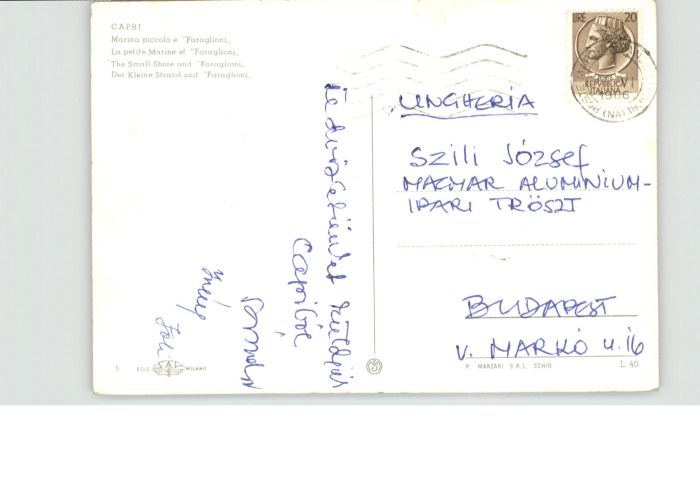 CAPRI
Marina piccola e "Faraglioni„
La petite Marine et "Faraglioni„
The Small Shore and "Faraglioni„
Der Kleine Strand und "Faraglioni„
LIRE 20
REPVBBLICA
ITALIANA
1966
UNGHERIA
Szili József
MAGYAR ALUMINIUM-
IPARI TRÖSZT
BUDAPEST
V. MARKÓ u. 16
Üdvözletünket küldjük
Capriból
5 EDIZ MILANO
P. MARZARI S.R.L. SCHIO
L. 40